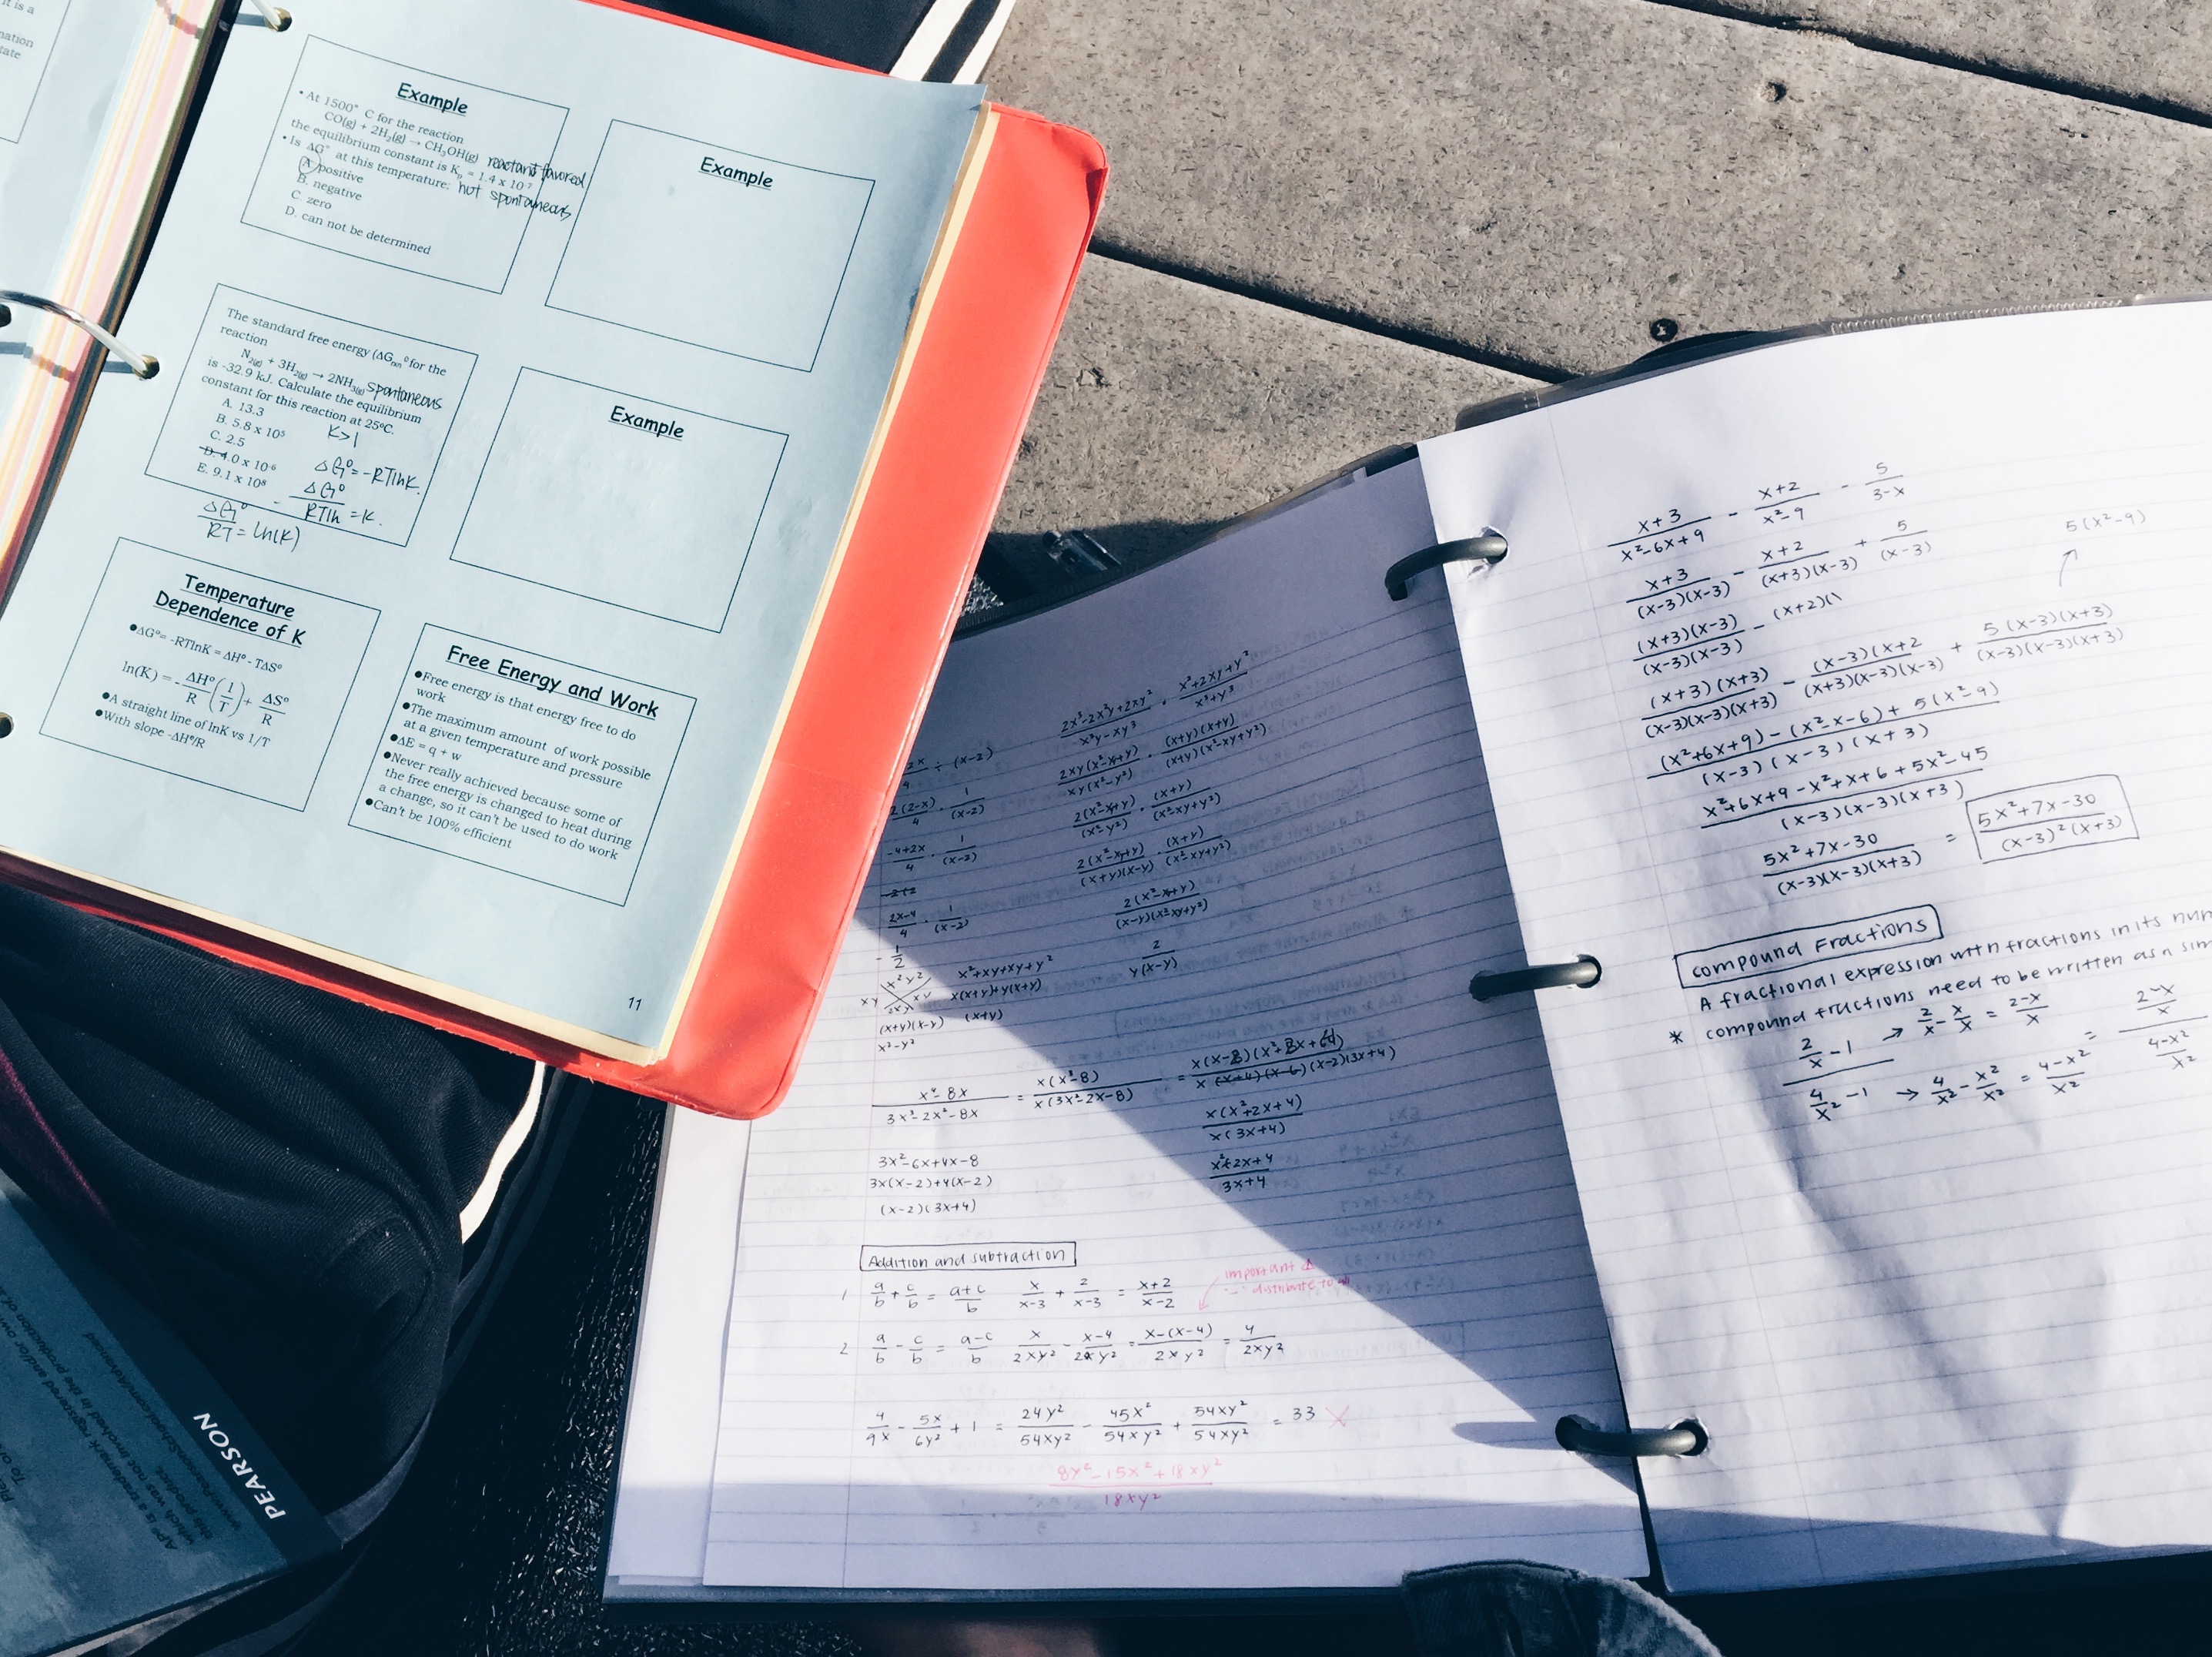 it is a
mation
tate
Example
• At 1500° C for the reaction
CO(g) + 2H₂(g) → CH₃OH(g) reactant favored
the equilibrium constant is Kp = 1.4 x 10⁻⁷
• Is ΔG° at this temperature: not spontaneous
A. positive
B. negative
C. zero
D. can not be determined
Example
The standard free energy (ΔGrxn⁰ for the
reaction
N₂(g) + 3H₂(g) → 2NH₃(g) spontaneous
is -32.9 kJ. Calculate the equilibrium
constant for this reaction at 25°C.
A. 13.3
B. 5.8 x 10⁵ K>1
C. 2.5
D. 4.0 x 10⁻⁶ ΔG°=-RTlnK.
E. 9.1 x 10⁸ - ΔG°/RTln = K.
ΔG°/RT = ln(K)
Example
Temperature
Dependence of K
●ΔG°= -RTlnK = ΔH° - TΔS°
ln(K) = - ΔH°/R (1/T) + ΔS°/R
●A straight line of lnK vs 1/T
●With slope -ΔH°/R
Free Energy and Work
●Free energy is that energy free to do
work
●The maximum amount of work possible
at a given temperature and pressure
●ΔE = q + w
●Never really achieved because some of
the free energy is changed to heat during
a change, so it can't be used to do work
●Can't be 100% efficient
11
PEARSON
÷ (x-2)
2(2-x)/4 · 1/(x-2)
-4+2x/4 · 1/(x-2)
2x-4/4 · 1/(x-2)
-1/2
x² y²
xy xy
2xy
(x+y)(x-y)
x²-y²
x²+xy+xy+y²
x(x+y)+y(x+y)
(x+y)
2x³-2x²y+2xy²/x³y-xy³ · x²+2xy+y²/x³+y³
2xy(x²-xy+y)/xy(x²-y²) · (x+y)(x+y)/(x+y)(x²-xy+y²)
2(x²-xy+y)/(x²-y²) · (x+y)/(x²-xy+y²)
2(x²-xy+y)/(x+y)(x-y) · (x+y)/(x²-xy+y²)
2(x²-xy+y)/(x-y)(x²-xy+y²)
2/y(x-y)
x⁴-8x/3x³-2x²-8x = x(x³-8)/x(3x²-2x-8)
x(x²+2x+4)/x(3x+4)
x²+2x+4/3x+4
3x²-6x+4x-8
3x(x-2)+4(x-2)
(x-2)(3x+4)
Addition and subtraction
important
distribute to
1 a/b + c/b = a+c/b x/x-3 + 2/x-3 = x+2/x-2
2 a/b - c/b = a-c/b x/2xy² - x-4/2xy² = x-(x-4)/2xy² = 4/2xy²
4/9x - 5x/6y² + 1 = 24y²/54xy² - 45x²/54xy² + 54xy²/54xy² = 33 X
8y²-15x²+18xy²/18xy²
x+3/x²-6x+9 - x+2/x²-9 - 5/3-x
x+3/(x-3)(x-3) - x+2/(x+3)(x-3) + 5/(x-3)
5(x²-9)
(x+3)(x-3)/(x-3)(x-3) - (x+2)(
(x+3)(x+3)/(x-3)(x-3)(x+3) - (x-3)(x+2/(x+3)(x-3)(x-3) + 5(x-3)(x+3)/(x-3)(x-3)(x+3)
(x²+6x+9)-(x²-x-6)+5(x²-9)/(x-3)(x-3)(x+3)
x²+6x+9-x²+x+6+5x²-45/(x-3)(x-3)(x+3)
5x²+7x-30/(x-3)(x-3)(x+3) = 5x²+7x-30/(x-3)²(x+3)
compound Fractions
A fractional expression with fractions in its num
* compound fractions need to be written as a sim
2/x - 1 → 2/x - x/x = 2-x/x
4/x² - 1 → 4/x² - x²/x² = 4-x²/x²
= 2-x/x
4-x²/x²